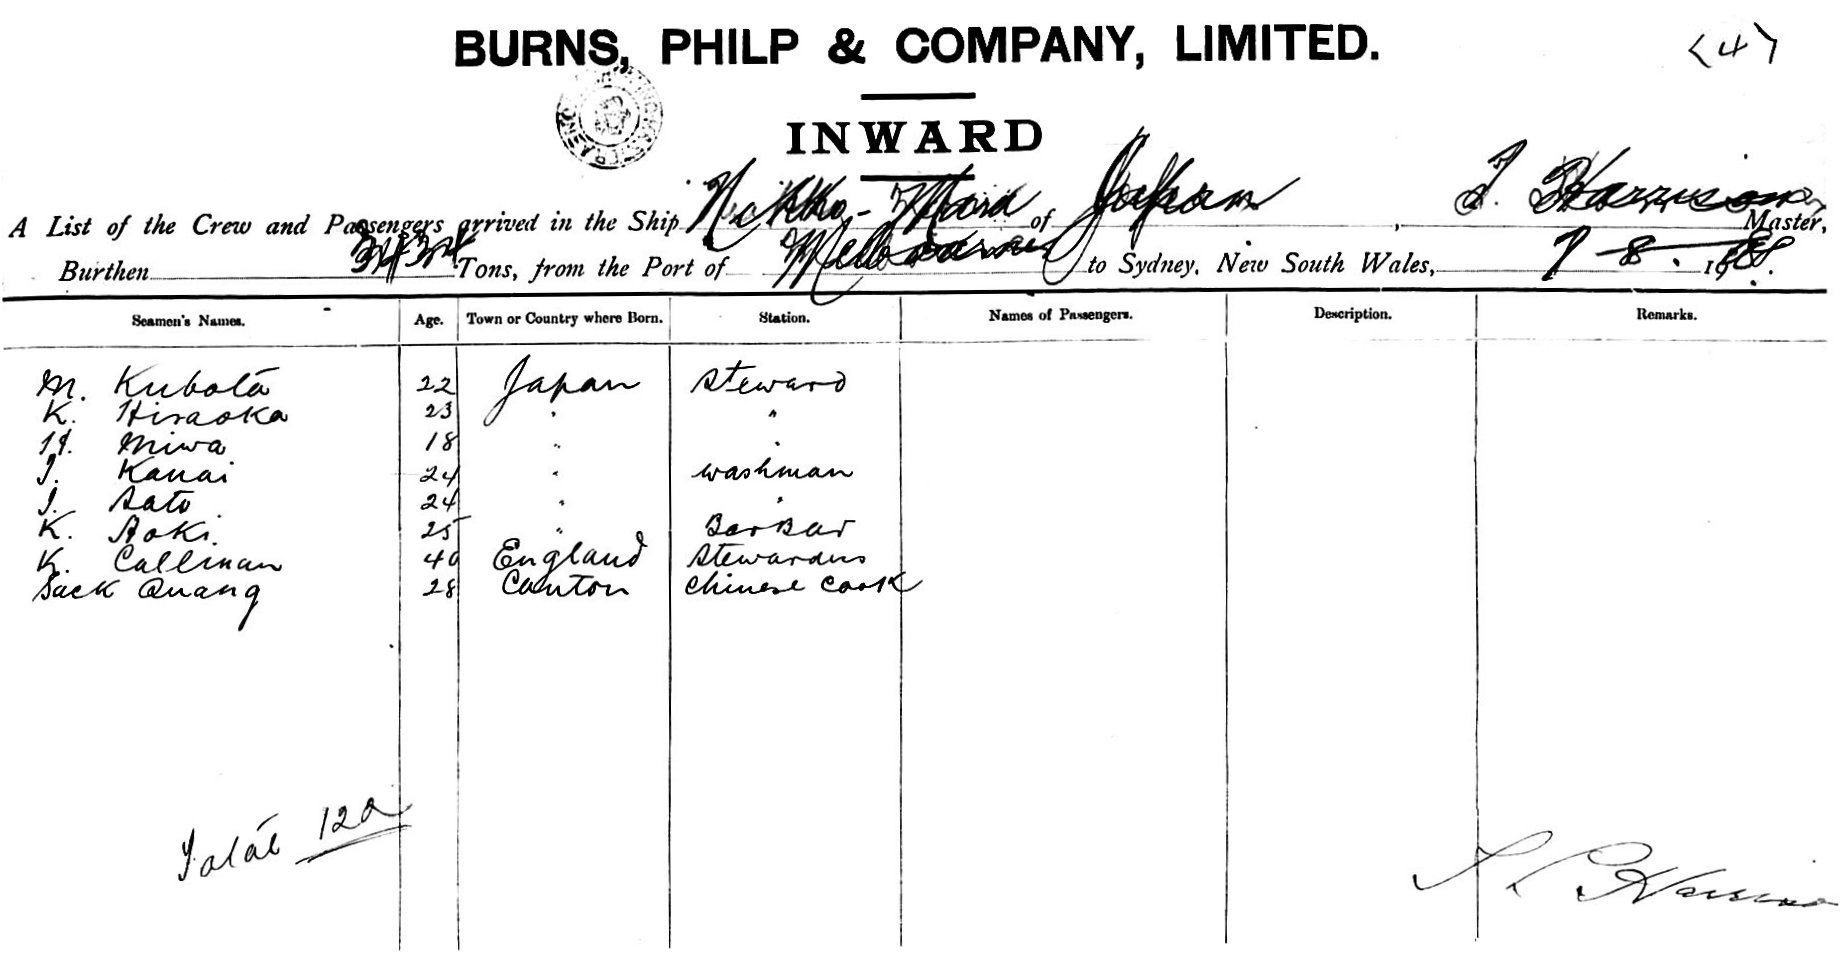 BURNS, PHILP & COMPANY, LIMITED.
(4)
INWARD
A List of the Crew and Passengers arrived in the Ship Nikko-Maru of Japan, T. Harrison Master,
Burthen 3434 Tons, from the Port of Melbourne to Sydney, New South Wales, 8.
Seamen's Names. Age. Town or Country where Born. Station. Names of Passengers. Description. Remarks.
M. Kubota 22 Japan Steward
K. Hiraoka 23 " "
H. Miwa 18 " "
T. Kanai 24 " washman
I. Sato 24 " "
K. Aoki 25 " BarBar
K. Callinan 40 England Stewardess
Sack Quang 28 Canton Chinese Cook
Total 120
Harrison